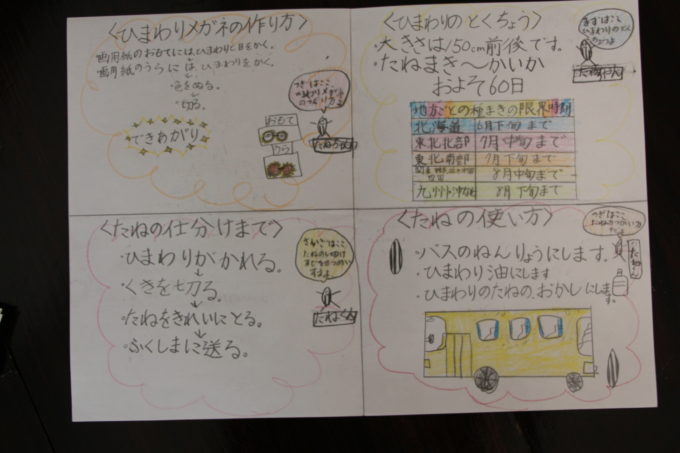 〈ひまわりメガネの作り方〉
・画用紙のおもてにはひまわりと目をかく。
・画用紙のうらにはひまわりをかく。
色をぬる。
切る。
できあがり
おもて
うら
つぎはここ
〈ひまわりのとくちょう〉
・大きさは150cm前後です。
・たねまき〜かいか
およそ60日
まずはここ
ひまわりのとく
地方ごとの種まきの限界時期
北海道 6月下旬まで
東北北部 7月中旬まで
東北南部 7月下旬まで
8月中旬まで
九州・沖縄 8月下旬まで
〈たねの仕分けまで〉
・ひまわりがかれる。
・くきを切る。
・たねをきれいにとる。
・ふくしまに送る。
さいごはここ
たねの仕分け
たねくん
〈たねの使い方〉
・バスのねんりょうにします。
・ひまわり油にします
・ひまわりのたねの、おかしにします。
つぎはここ
たねのつかい方